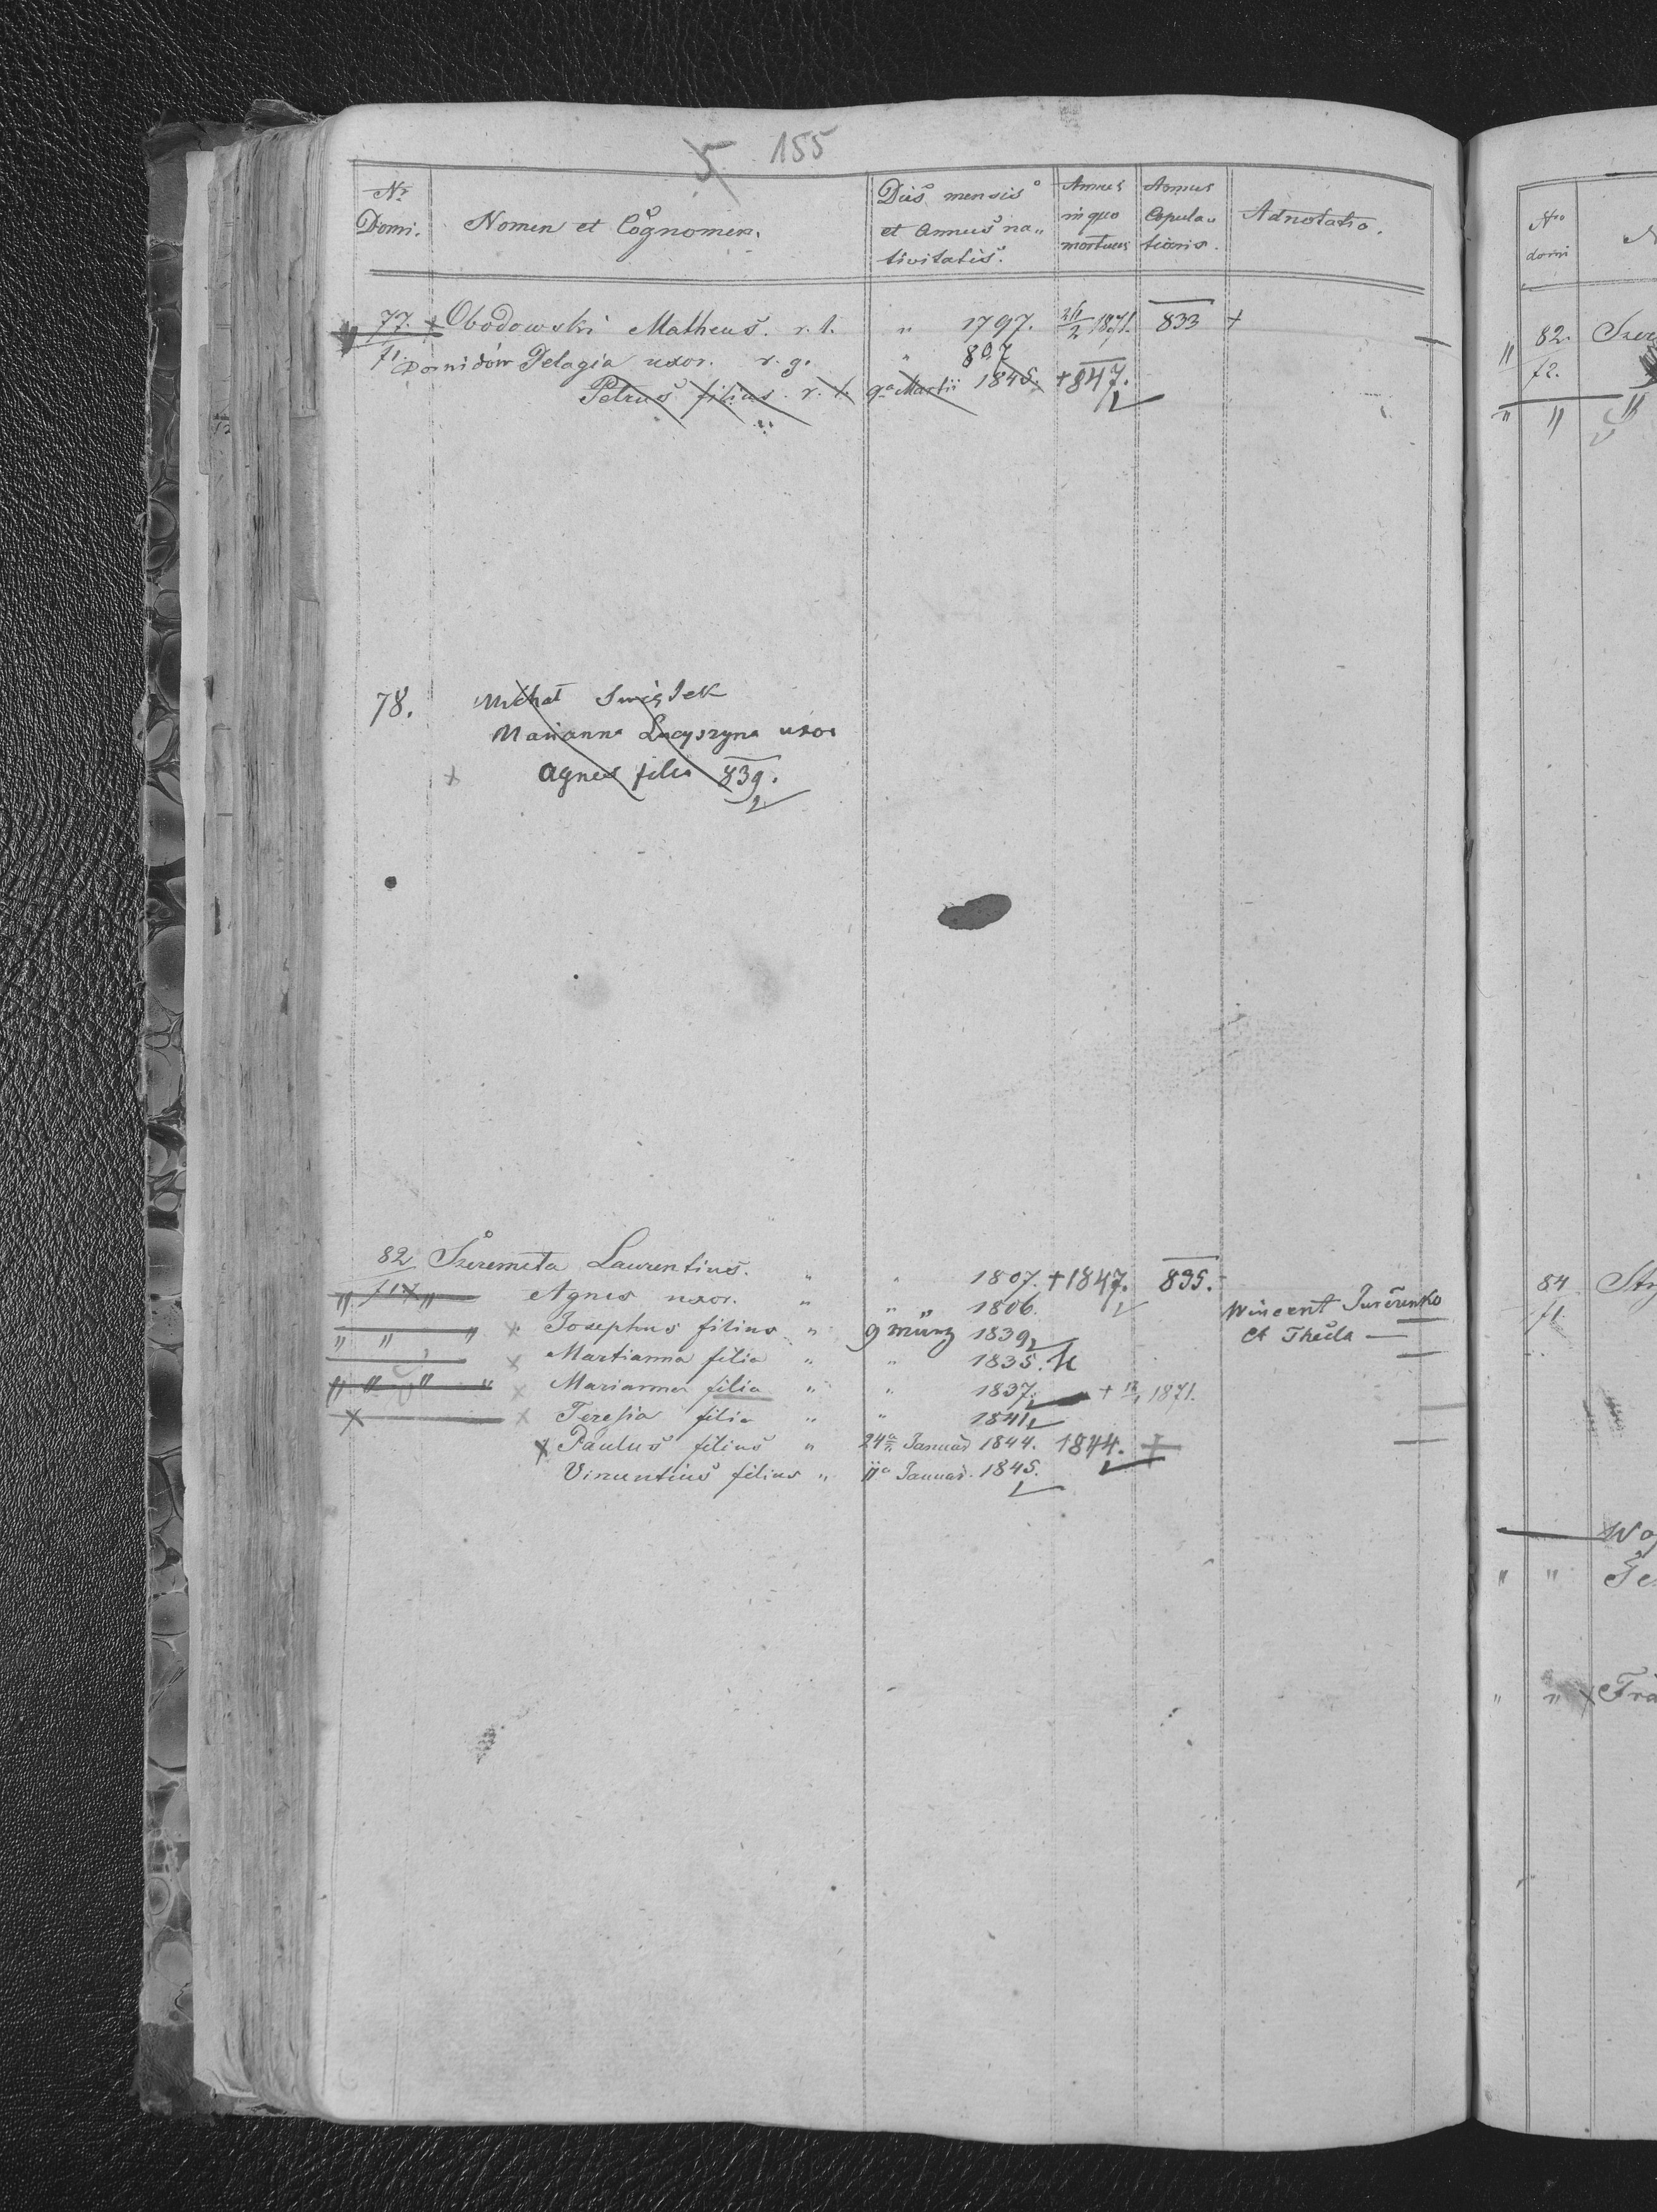 5 155
Nr Domi. Nomen et Cognomen. Dies mensis et Annus na„ tivitatis. Annus in quo mortuus Annus Copula„ tionis. Adnotatio.
77. + Obodowski Matheus. r. l. „ 1797. 26/2 1871. 833 +
f1. Pelagia uxor. r. g. „ 807
Petrus filius. r. l. 9a Martii 1845. +847.
78. Michał Swiątek
Marianna uxor
x Agnes filia 839.
82 Szeremeta Laurentius. „ „ 1807. +1847. 835.
„ f1 x „ Agnes uxor. „ „ „ 1806.
„ „ „ x Josephus filius „ 9 März 1839
x Martianna filia „ „ 1835.
„ „ „ „ x Marianna filia „ „ 1837. + 1871.
x x Teresia filia „ „ 1841
x Paulus filius „ 24a Januar 1844. 1844. +
Vincentius filius „ 11a Januar. 1845.
Wincent
et Thecla —
Nro domi
„ 82. Szer
f2.
„ „ „
84 Stry
f1.
Woj
„ „ Te
„ „ x Fra